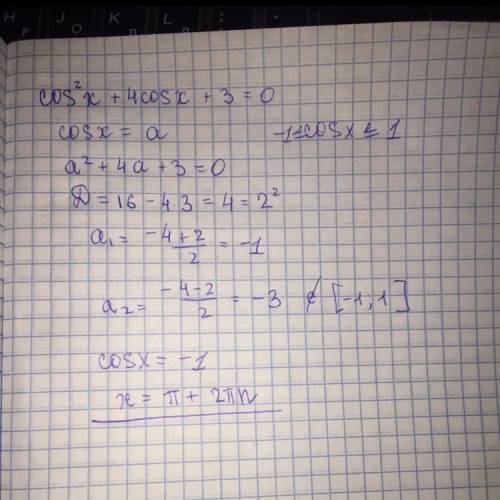 H J K L :
Р О Л
cos²x + 4cosx + 3 = 0
cosx = a -1≤cosx ≤ 1
a² + 4a + 3 = 0
D = 16 - 4·3 = 4 = 2²
a₁ = (-4+2)/2 = -1
a₂ = (-4-2)/2 = -3 ∉ [-1; 1]
cosx = -1
x = π + 2πn